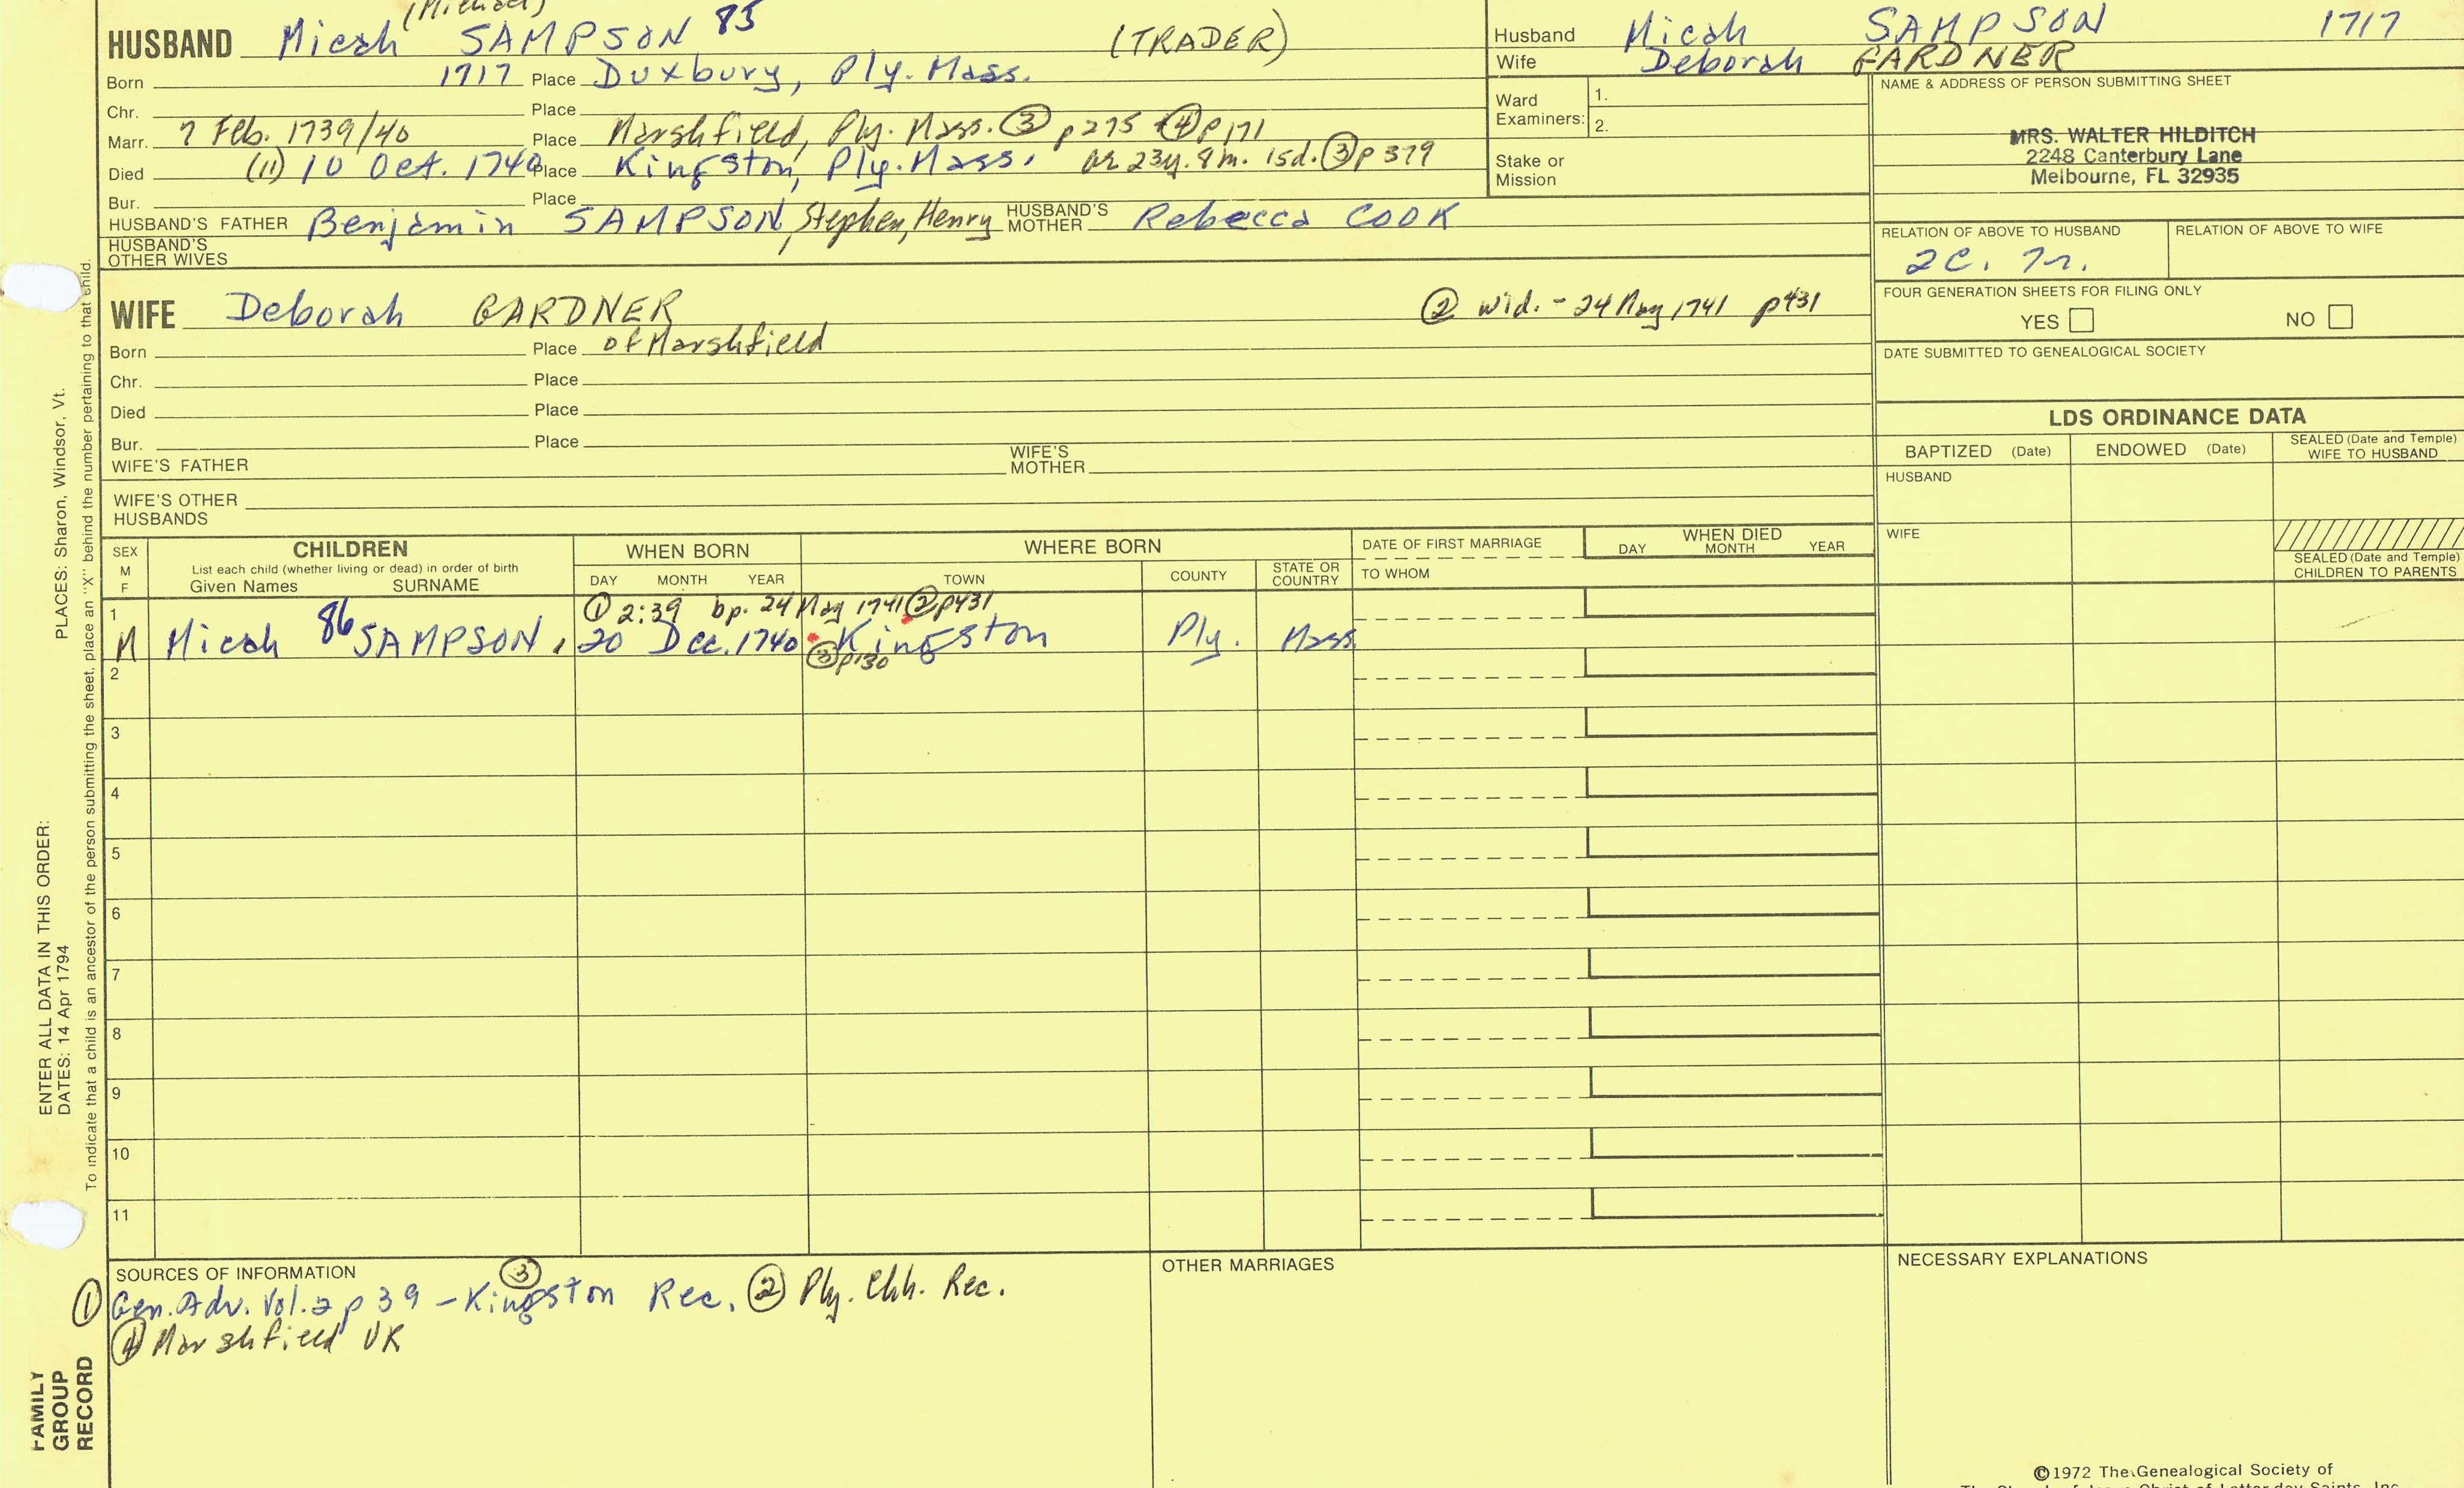 (Michael)
HUSBAND Micah SAMPSON 85 (TRADER)
Born 1717 Place Duxbury, Ply. Mass.
Chr. Place
Marr. 7 Feb. 1739/40 Place Marshfield, Ply. Mass. ③ p275 ④ p171
Died (11) 10 Oct. 1740 Place Kingston, Ply. Mass. ae 23y. 8m. 15d. ③ p379
Bur. Place
HUSBAND'S FATHER Benjamin SAMPSON, Stephen, Henry HUSBAND'S MOTHER Rebecca COOK
HUSBAND'S OTHER WIVES
Husband Micah SAMPSON 1717
Wife Deborah GARDNER
Ward Examiners: 1.
2.
Stake or Mission
NAME & ADDRESS OF PERSON SUBMITTING SHEET
MRS. WALTER HILDITCH
2248 Canterbury Lane
Melbourne, FL 32935
RELATION OF ABOVE TO HUSBAND RELATION OF ABOVE TO WIFE
2C. 7r.
FOUR GENERATION SHEETS FOR FILING ONLY
YES NO
DATE SUBMITTED TO GENEALOGICAL SOCIETY
WIFE Deborah GARDNER ② wid. - 24 May 1741 p431
Born Place of Marshfield
Chr. Place
Died Place
Bur. Place
WIFE'S FATHER WIFE'S MOTHER
WIFE'S OTHER HUSBANDS
LDS ORDINANCE DATA
BAPTIZED (Date) ENDOWED (Date) SEALED (Date and Temple) WIFE TO HUSBAND
HUSBAND
WIFE
SEALED (Date and Temple) CHILDREN TO PARENTS
SEX M F CHILDREN WHEN BORN WHERE BORN DATE OF FIRST MARRIAGE WHEN DIED
List each child (whether living or dead) in order of birth
Given Names SURNAME DAY MONTH YEAR TOWN COUNTY STATE OR COUNTRY TO WHOM DAY MONTH YEAR
1 ① 2:39 bp. 24 May 1741 ② p431
M Micah 86 SAMPSON, 20 Dec. 1740 Kingston Ply. Mass.
③ p130
2
3
4
5
6
7
8
9
10
11
SOURCES OF INFORMATION
① Gen. Adv. Vol. 2 p 39 - ③ Kingston Rec. ② Ply. Chh. Rec.
④ Marshfield VR
OTHER MARRIAGES
NECESSARY EXPLANATIONS
©1972 The Genealogical Society of
The Church of Jesus Christ of Latter-day Saints, Inc.
ENTER ALL DATA IN THIS ORDER:
DATES: 14 Apr 1794
PLACES: Sharon, Windsor, Vt.
To indicate that a child is an ancestor of the person submitting the sheet, place an "X" behind the number pertaining to that child.
FAMILY
GROUP
RECORD